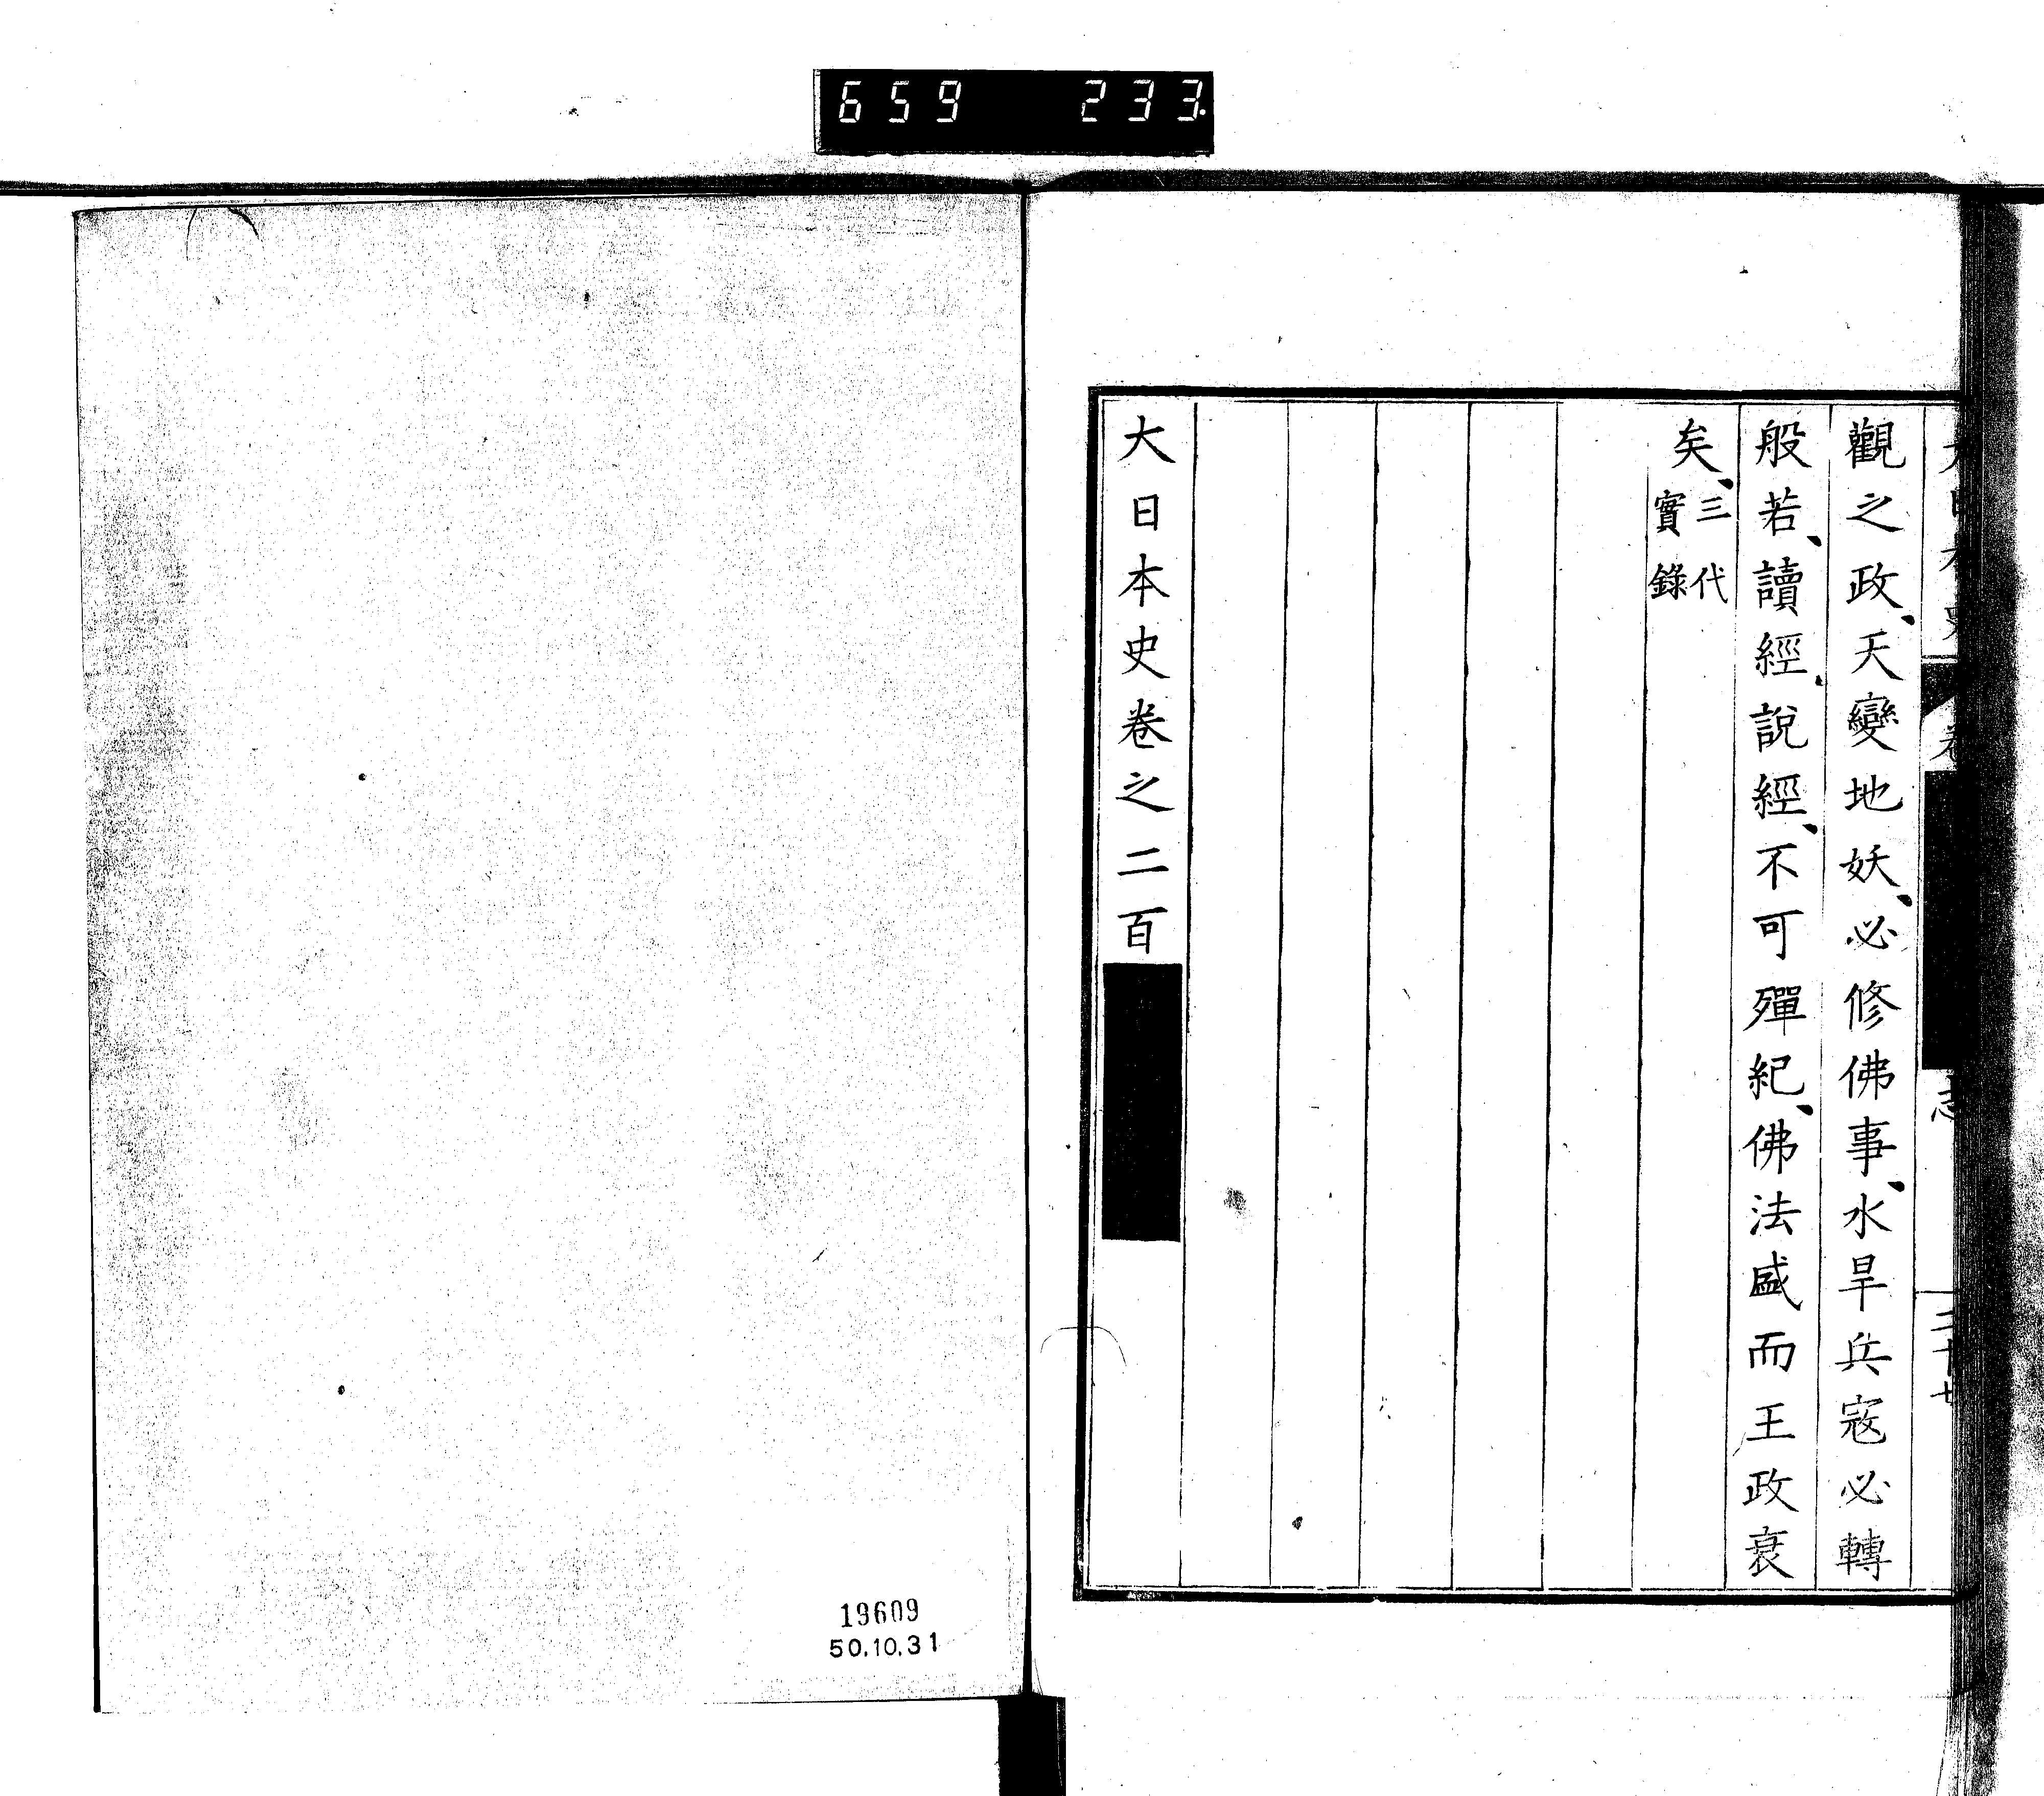 659 233.
觀之政、天變地妖、必修佛事、水旱兵寇必轉
般若、讀經、說經、不可殫紀、佛法盛而王政衰
矣、三代
實錄
大日本史卷之二百
19609
50.10.31